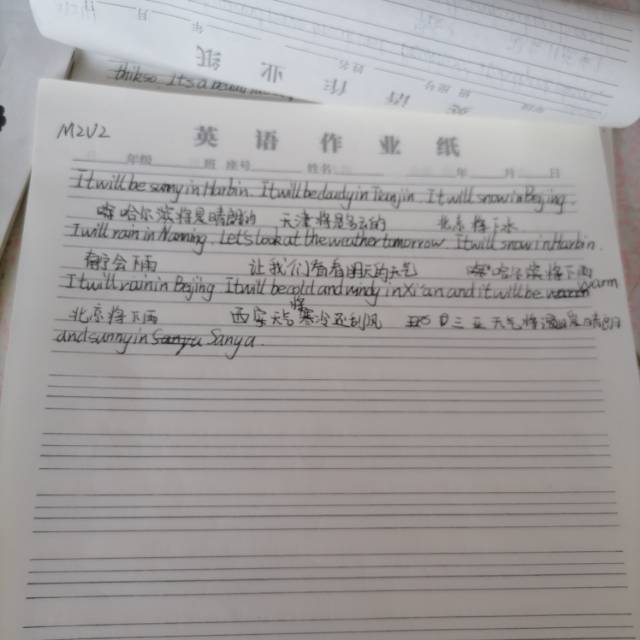 thikso. It's a
英语作业纸
M2U2
英 语 作 业 纸
年级 班 座号 姓名 年 月 日
It will be sunny in Harbin. It will be cloudy in Tianjin. It will snow in Beijing.
哈尔滨将是晴朗的 天津将是多云的 北京将下
I will rain in Naming. Let's look at the weather tomorrow. It will snow in Harbin.
会下雨 让我们看看明天的天气 哈尔滨将下雨
It will rain in Beijing. It will be cold and windy in Xi'an and it will be warm
北京将下雨 西安天气将寒冷还刮风 三亚天气将
and sunny in Sanya.